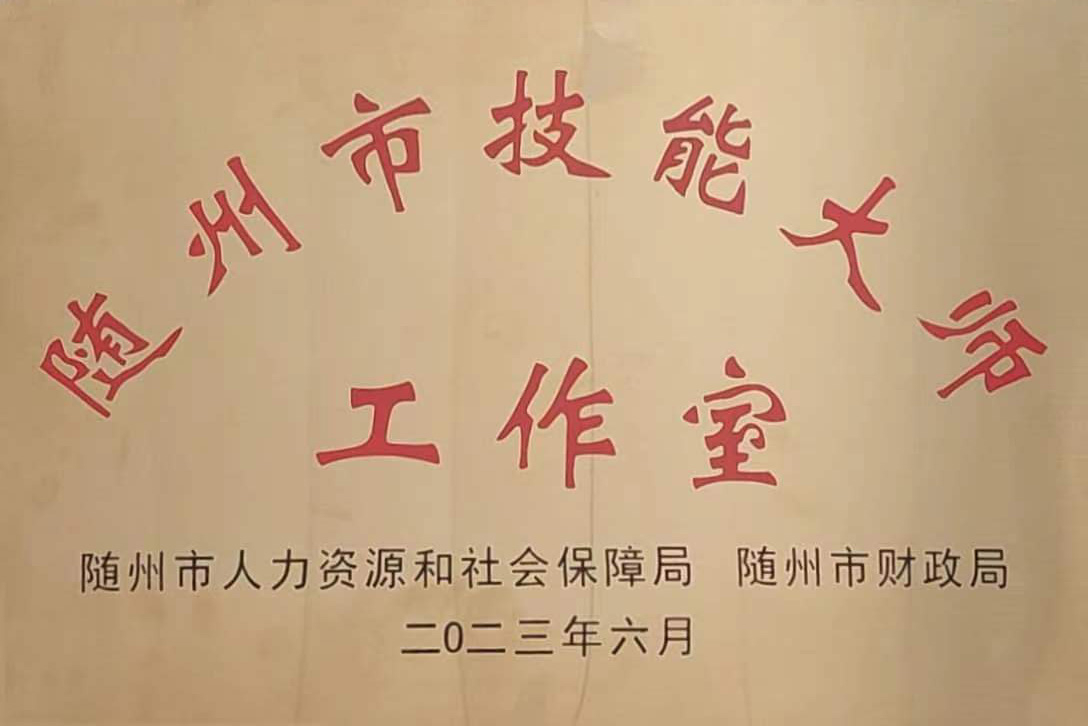 随州市技能大师
工作室
随州市人力资源和社会保障局 随州市财政局
二0二三年六月